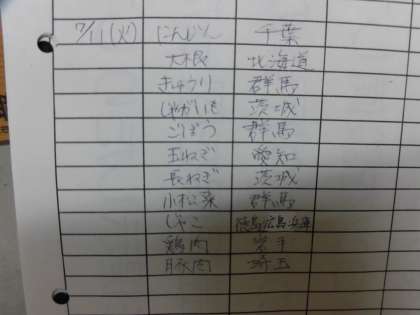 7/11(火) にんじん 千葉
大根 北海道
きゅうり 群馬
じゃがいも 茨城
ごぼう 群馬
玉ねぎ 愛知
長ねぎ 茨城
小松菜 群馬
じゃこ 徳島広島兵庫
鶏肉 岩手
豚肉 埼玉